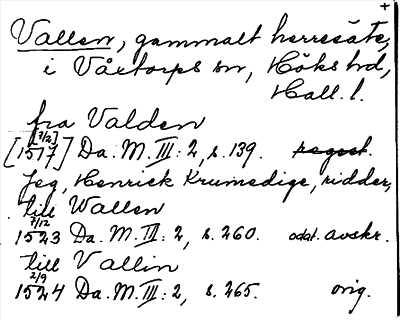 +
Vallen, gammalt herresäte,
i Våxtorps sn, Höks hd,
Hall. l.
fra Valden
[7/2]
[1517] Da. M. III: 2, s. 139. regest.
Jeg, Henrick Krumedige, ridder,
till Wallen
7/12
1523 Da. M. III: 2, s. 260. odat. avskr.
till Vallin
2/9
1524 Da. M. III: 2, s. 265. orig.